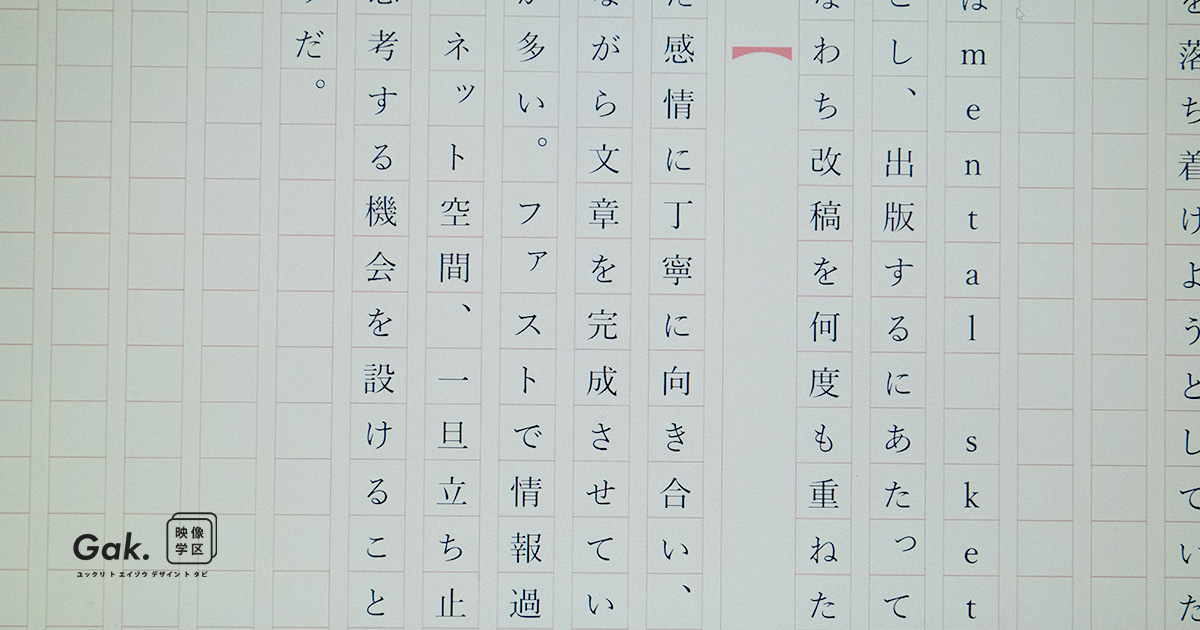 を落ち着けようとしていた
はmental sket
し、出版するにあたって
なわち改稿を何度も重ねた
た感情に丁寧に向き合い、
ながら文章を完成させてい
が多い。ファストで情報過
ネット空間、一旦立ち止
考する機会を設けること
だ。
Gak. 映像学区
ユックリ ト エイゾウ デザイン ト タビ